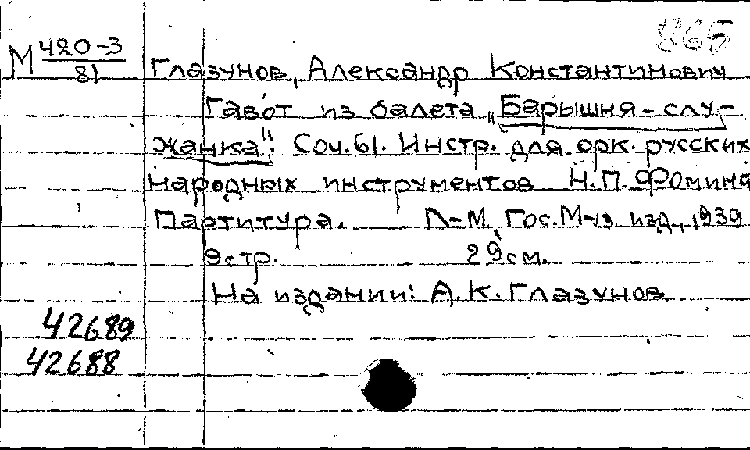 865
М 420-3
81
Глазунов, Александр Константинович
Гавот из балета „Барышня-слу-
жанка". Соч.61. Инстр. для орк. русских
народных инструментов Н.П. Фомина
Партитура. Л-М, Гос.М-уз изд., 1939
9стр. 29см.
На издании: А.К.Глазунов
42689
42688